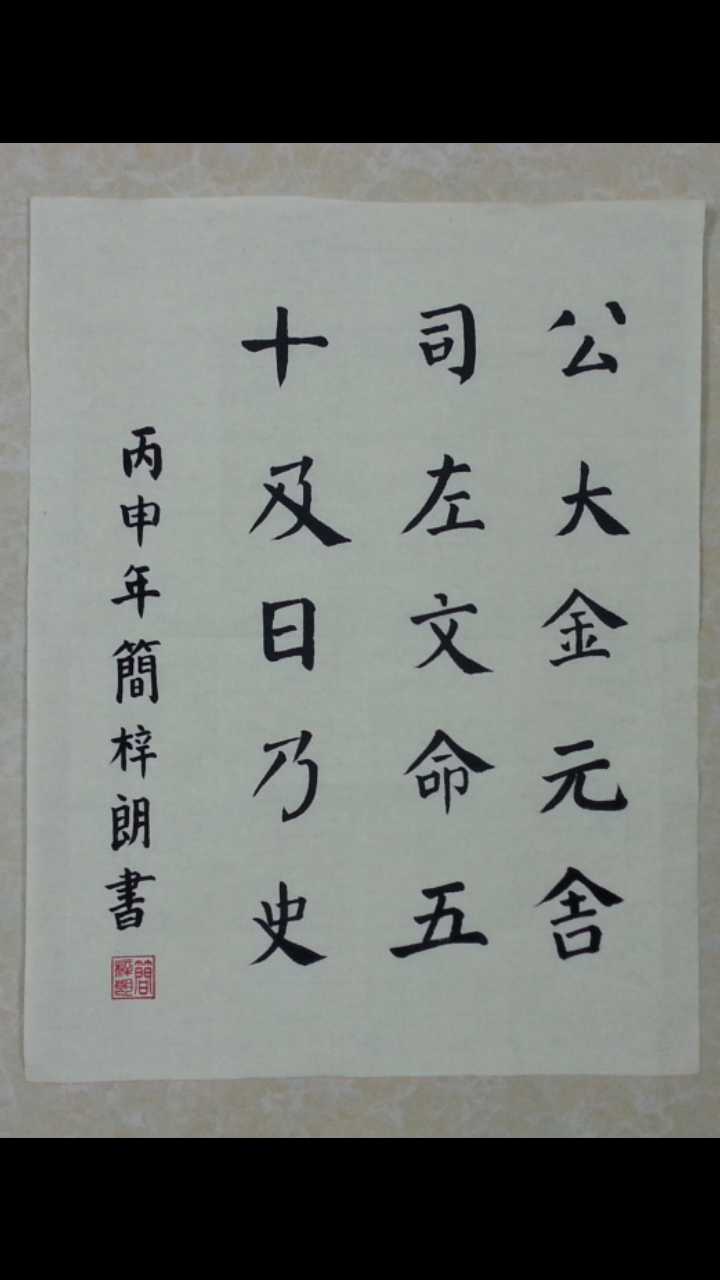 公大金元舍
司左文命五
十及日乃史
丙申年簡梓朗書
簡梓朗